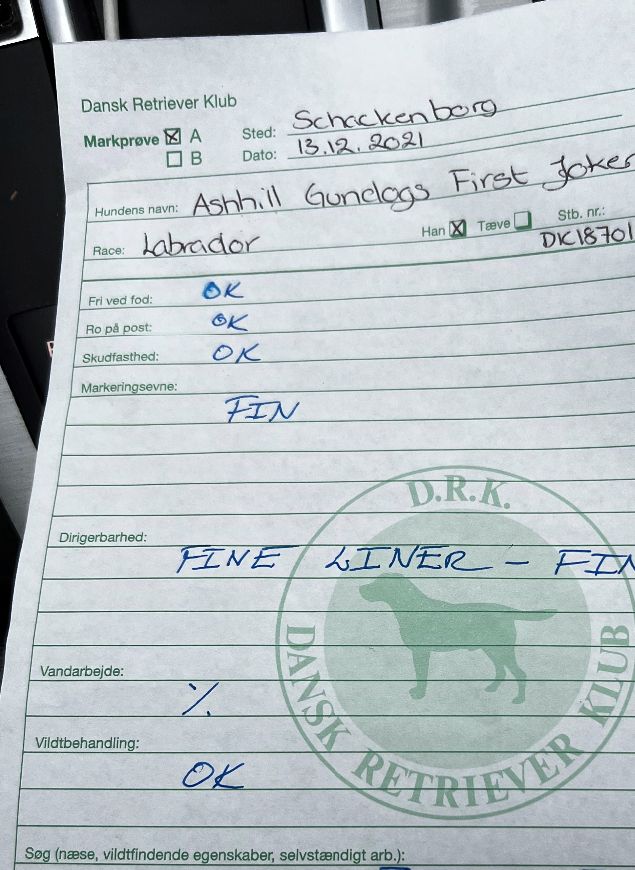 Dansk Retriever Klub
Markprøve ☒ A Sted: Schackenborg
☐ B Dato: 13.12.2021
Hundens navn: Ashhill Gundogs First Joker
Race: Labrador Han ☒ Tæve ☐ Stb. nr.:
DK18701
Fri ved fod: OK
Ro på post: OK
Skudfasthed: OK
Markeringsevne:
FIN
D.R.K.
Dirigerbarhed:
FINE LINER - FIN
Vandarbejde:
%
Vildtbehandling:
OK
DANSK RETRIEVER KLUB
Søg (næse, vildtfindende egenskaber, selvstændigt arb.):